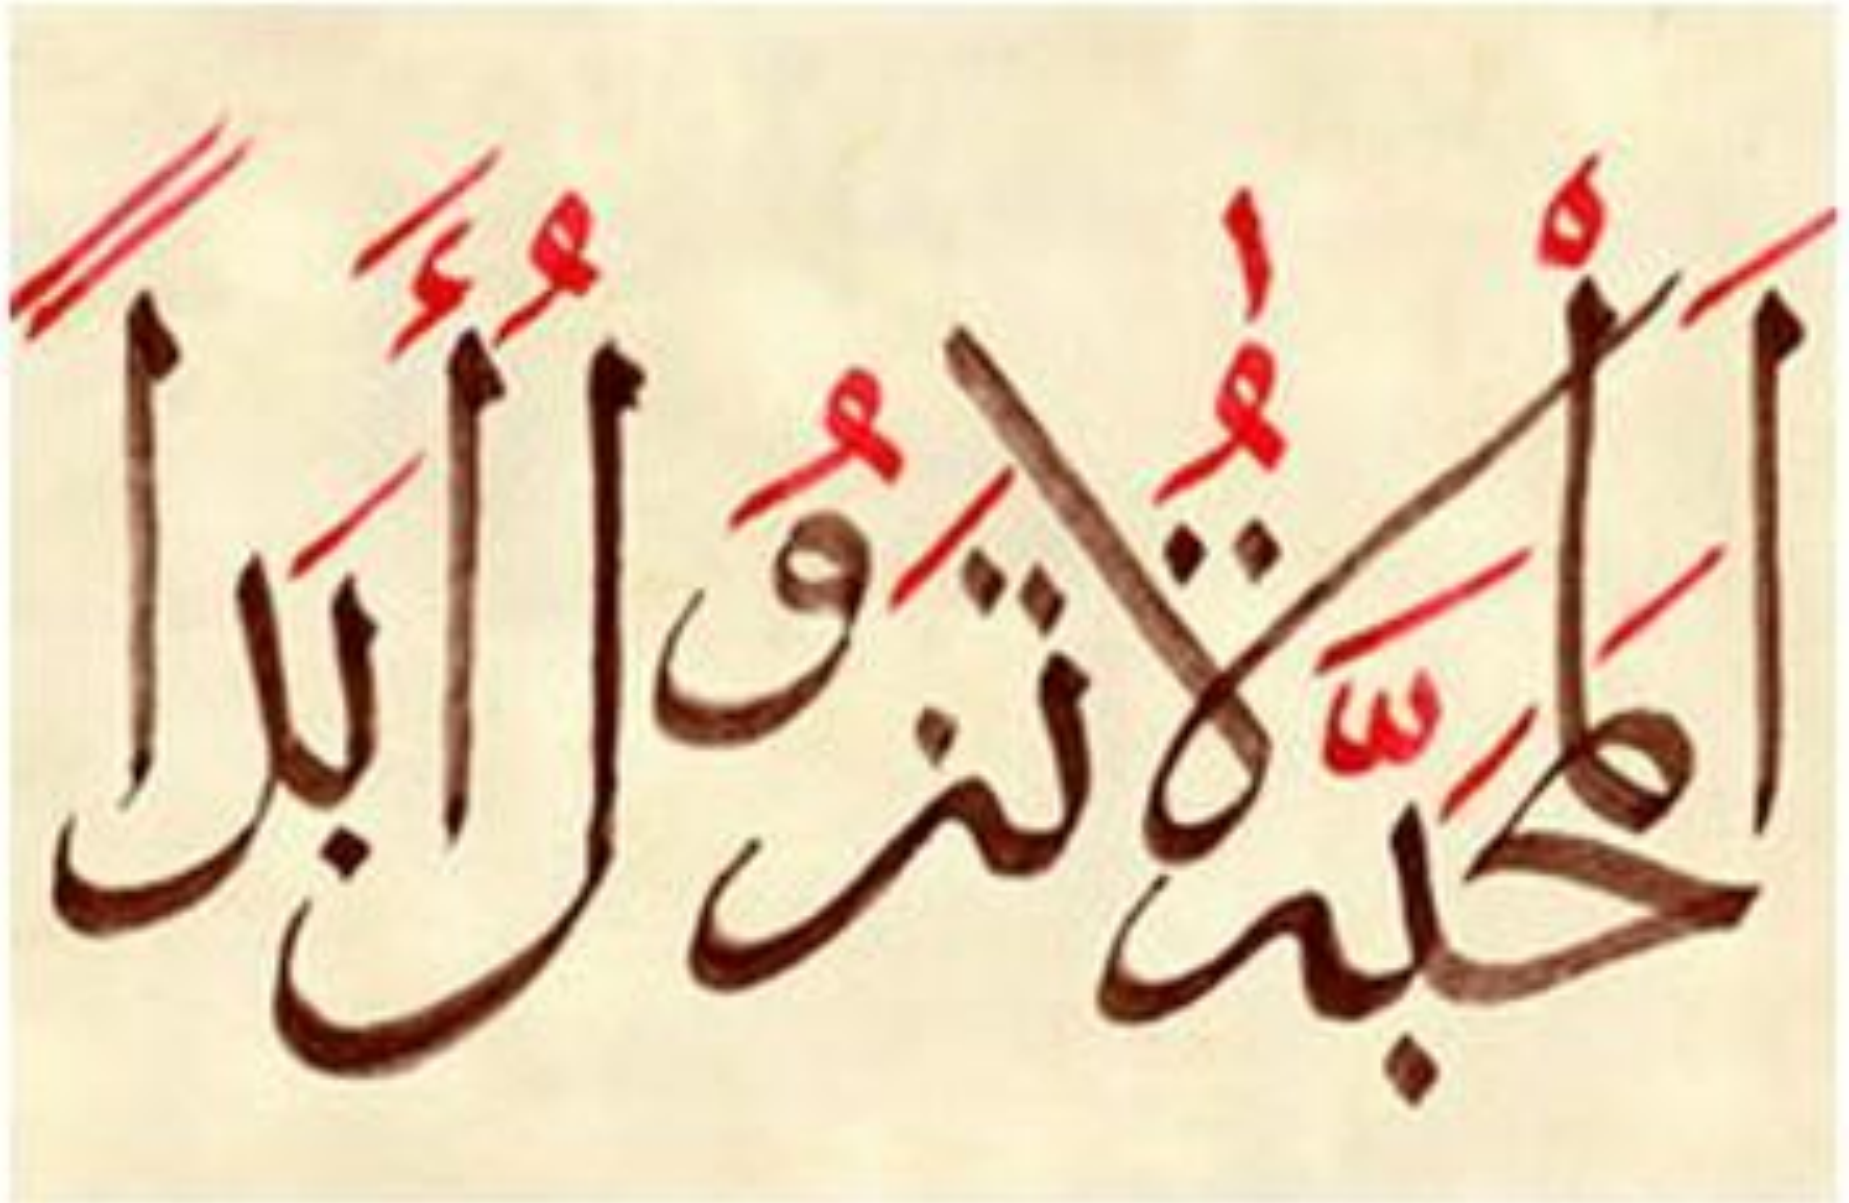 اَلْمَحَبَّةُ لَا تَزُولُ أَبَداً